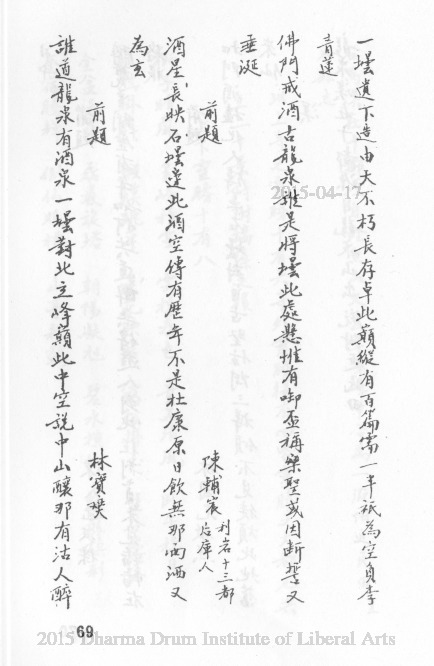 一壜遺下造由天不朽長存卓此巔縱有百篇需一斗祇為空負李
青蓮
佛門戒酒古龍泉誰是將壜此處懸惟有啣盃稱樂聖或因斷誓又
垂涎
前題
陳輔宸 利者十三都后庫人
酒星長映石壜邊此酒空傳有歷年不是杜康原日飲無那西洒又
為玄
前題
林寶璞
誰道龍泉有酒泉一壜對北立峰巔此中空說中山釀那有沽人醉
69
2015-04-17
2015 Dharma Drum Institute of Liberal Arts